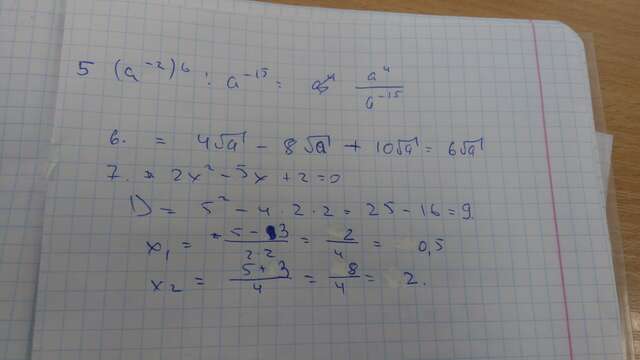 5 (a⁻²)⁶ : a⁻¹⁵ = a⁴/a⁻¹⁵
6. = 4√a - 8√a + 10√a = 6√a
7. 2x² - 5x + 2 = 0
D = 5² - 4 · 2 · 2 = 25 - 16 = 9
x₁ = (5 - 3)/(2 · 2) = 2/4 = 0,5
x₂ = (5 + 3)/4 = 8/4 = 2.